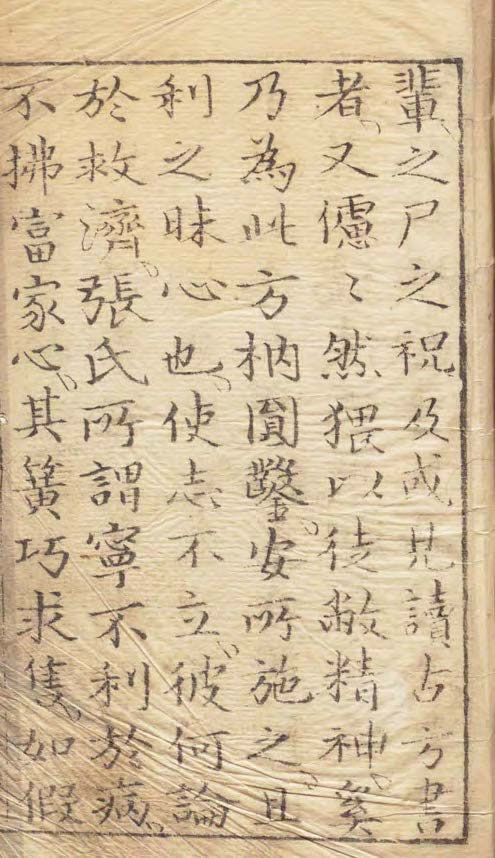 輩之尸之祝及或見讀古方書
者又儢〻然猥以徒敝精神奚
乃為此方枘圓鑿安所施之且
利之昧心也使志不立彼何論
於救濟張氏所謂寧不利於病
不拂富家心其簧巧求隻如假